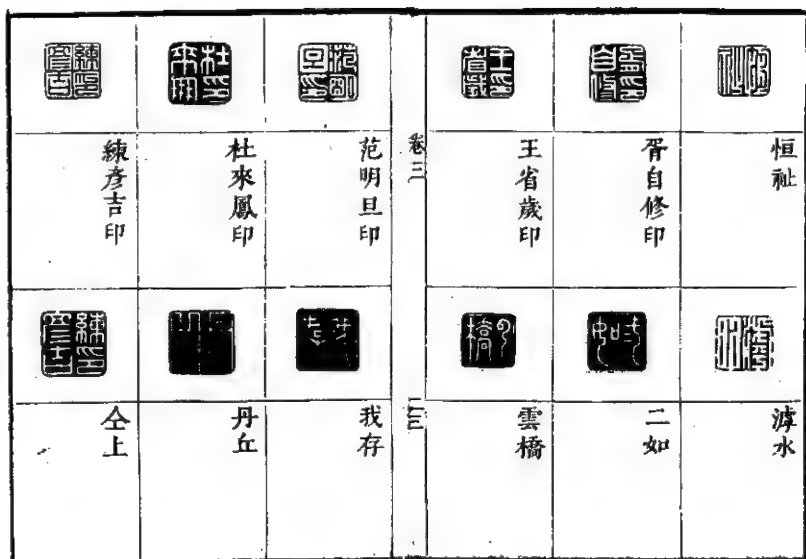 恒祉
胥自修印
王省歲印
滹水
二如
雲橋
卷三
范明旦印
杜來鳳印
練彥吉印
我存
丹丘
仝上